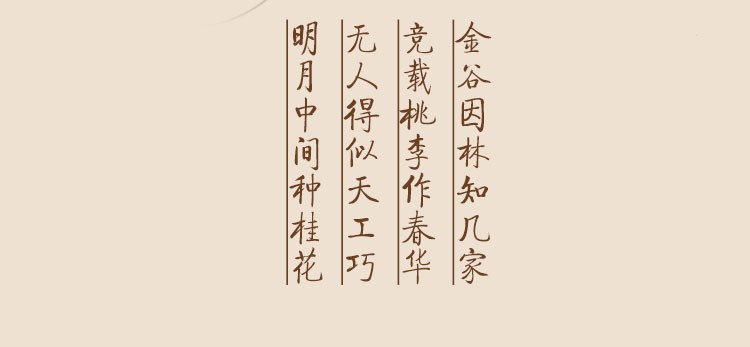 金谷因林知几家
竞载桃李作春华
无人得似天工巧
明月中间种桂花